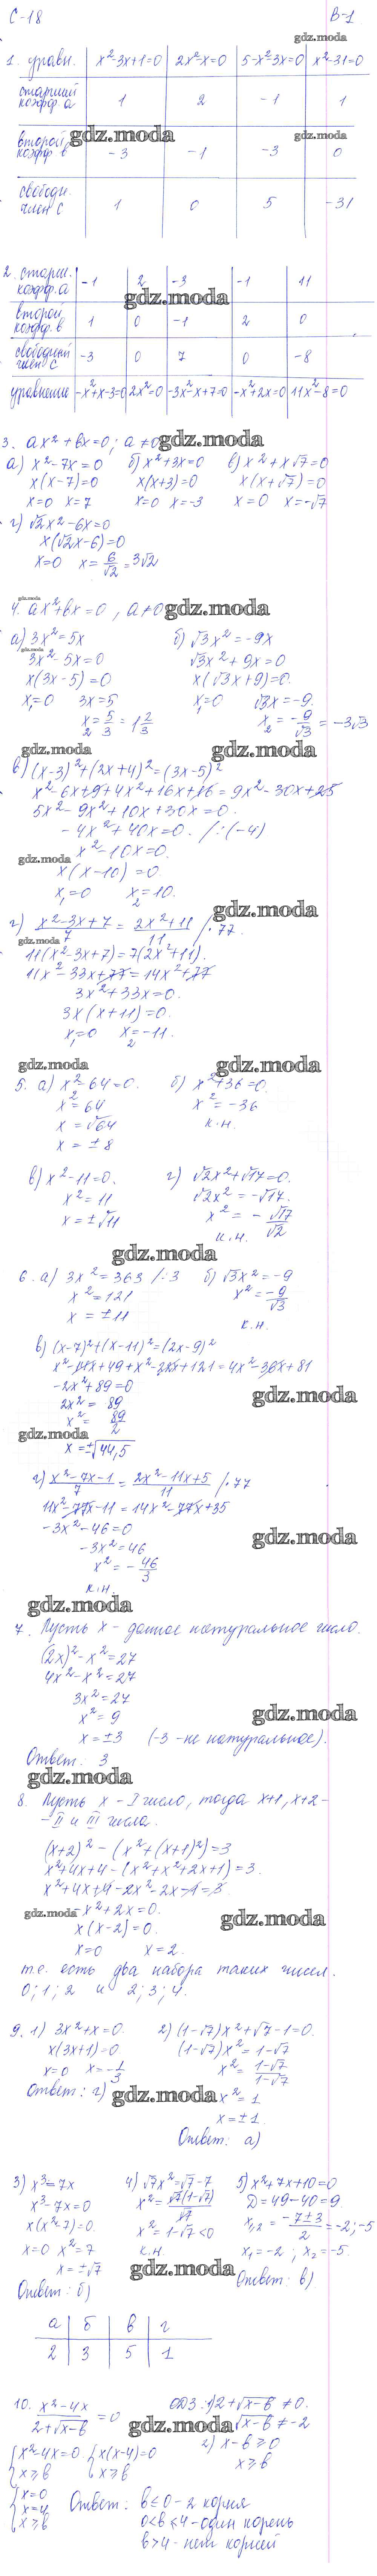 С-18 В-1
gdz.moda
1. уравн. x²-3x+1=0 2x²-x=0 5-x²-3x=0 x²-31=0
старший коэфф. a 1 2 -1 1
gdz.moda gdz.moda
второй коэфф b -3 -1 -3 0
свободн. член c 1 0 5 -31
2. старш. коэфф. a -1 2 -3 -1 11
gdz.moda
второй коэфф. b 1 0 -1 2 0
свободный член c -3 0 7 0 -8
уравнение -x²+x-3=0 2x²=0 -3x²-x+7=0 -x²+2x=0 11x²-8=0
3. ax²+bx=0; a≠0 gdz.moda
а) x²-7x=0 б) x²+3x=0 в) x²+x√7=0
x(x-7)=0 x(x+3)=0 x(x+√7)=0
x=0 x=7 x=0 x=-3 x=0 x=-√7
г) √2x²-6x=0
x(√2x-6)=0
x=0 x=6/√2=3√2
gdz.moda
4. ax²+bx=0, a≠0 gdz.moda
а) 3x²=5x б) √3x²=-9x
gdz.moda
3x²-5x=0 √3x²+9x=0
x(3x-5)=0 x(√3x+9)=0.
x₁=0 3x=5 x₁=0 √3x=-9.
x₂=5/3=1 2/3 x₂=-9/√3=-3√3
gdz.moda gdz.moda
в) (x-3)²+(2x+4)²=(3x-5)²
x²-6x+9+4x²+16x+16=9x²-30x+25
5x²-9x²+10x+30x=0.
-4x²+40x=0. /:(-4)
x²-10x=0.
gdz.moda
x(x-10)=0.
x₁=0 x₂=10.
gdz.moda
г) (x²-3x+7)/7=(2x²+11)/11 /·77.
gdz.moda
11(x²-3x+7)=7(2x²+11).
11x²-33x+77=14x²+77
3x²+33x=0.
3x(x+11)=0.
x₁=0 x₂=-11.
gdz.moda gdz.moda
5. а) x²-64=0. б) x²+36=0.
x²=64 x²=-36
x=√64 к.н.
x=±8
в) x²-11=0. г) √2x²+√17=0.
x²=11 √2x²=-√17.
x=±√11 x²=-√17/√2
к.н.
gdz.moda
6. а) 3x²=363 /:3 б) √3x²=-9
x²=121 x²=-9/√3
x=±11 к.н.
в) (x-7)²+(x-11)²=(2x-9)²
x²-14x+49+x²-22x+121=4x²-36x+81
-2x²+89=0 gdz.moda
2x²=89
x²=89/2
gdz.moda
x=±√44,5
г) (x²-7x-1)/7=(2x²-11x+5)/11 /·77
11x²-77x-11=14x²-77x+35
-3x²-46=0 gdz.moda
-3x²=46
x²=-46/3
к.н.
gdz.moda
7. Пусть x - данное натуральное число.
(2x)²-x²=27
4x²-x²=27
3x²=27
x²=9 gdz.moda
x=±3 (-3 - не натуральное).
Ответ: 3
gdz.moda
8. Пусть x - I число, тогда x+1, x+2 -
- II и III числа.
(x+2)²-(x²+(x+1)²)=3
x²+4x+4-(x²+x²+2x+1)=3.
x²+4x+4-2x²-2x-1=3.
gdz.moda -x²+2x=0. gdz.moda
x(x-2)=0.
x=0 x=2.
т.е. есть два набора таких чисел.
0; 1; 2 и 2; 3; 4.
9. 1) 3x²+x=0. 2) (1-√7)x²+√7-1=0.
x(3x+1)=0 (1-√7)x²=1-√7
x=0 x=-1/3 x²=(1-√7)/(1-√7)
Ответ: г) gdz.moda x²=1
x=±1
Ответ: а)
3) x³=7x 4) √7x²=√7-7 5) x²+7x+10=0
x³-7x=0 x²=√7(1-√7)/√7 D=49-40=9.
x(x²-7)=0. x²=1-√7<0 x₁,₂=(-7±3)/2=-2;-5
x=0 x²=7 к.н. x₁=-2; x₂=-5.
x=±√7 gdz.moda
Ответ: б) Ответ: в)
а б в г
2 3 5 1
10. (x²-4x)/(2+√x-b)=0 ОДЗ: 1) 2+√x-b≠0.
gdz.moda √x-b≠-2
x²-4x=0 x(x-4)=0 2) x-b≥0
x≥b x≥b x≥b
x=0
x=4 Ответ: b≤0 - 2 корня
x≥b 0<b≤4 - один корень
b>4 - нет корней